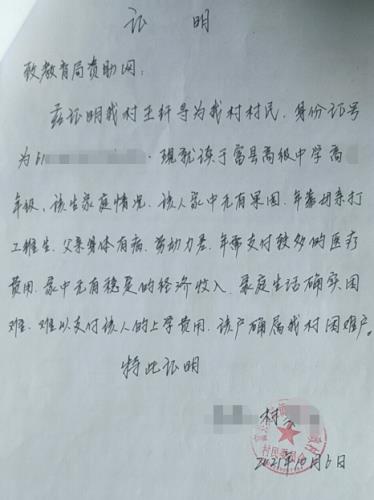 证 明
致教育局资助网：
兹证明我村王轩导为我村村民，身份证号
为61 ，现就读于富县高级中学高
年级，该生家庭情况，该人家中无有果园，年靠母亲打
工维生，父亲身体有病，劳动力差，年需支付较多的医疗
费用，家中无有稳定的经济收入，家庭生活确实困
难，难以支付该人的上学费用，该户确属我村困难户。
特此证明
村
村民委员会
2021年10月6日